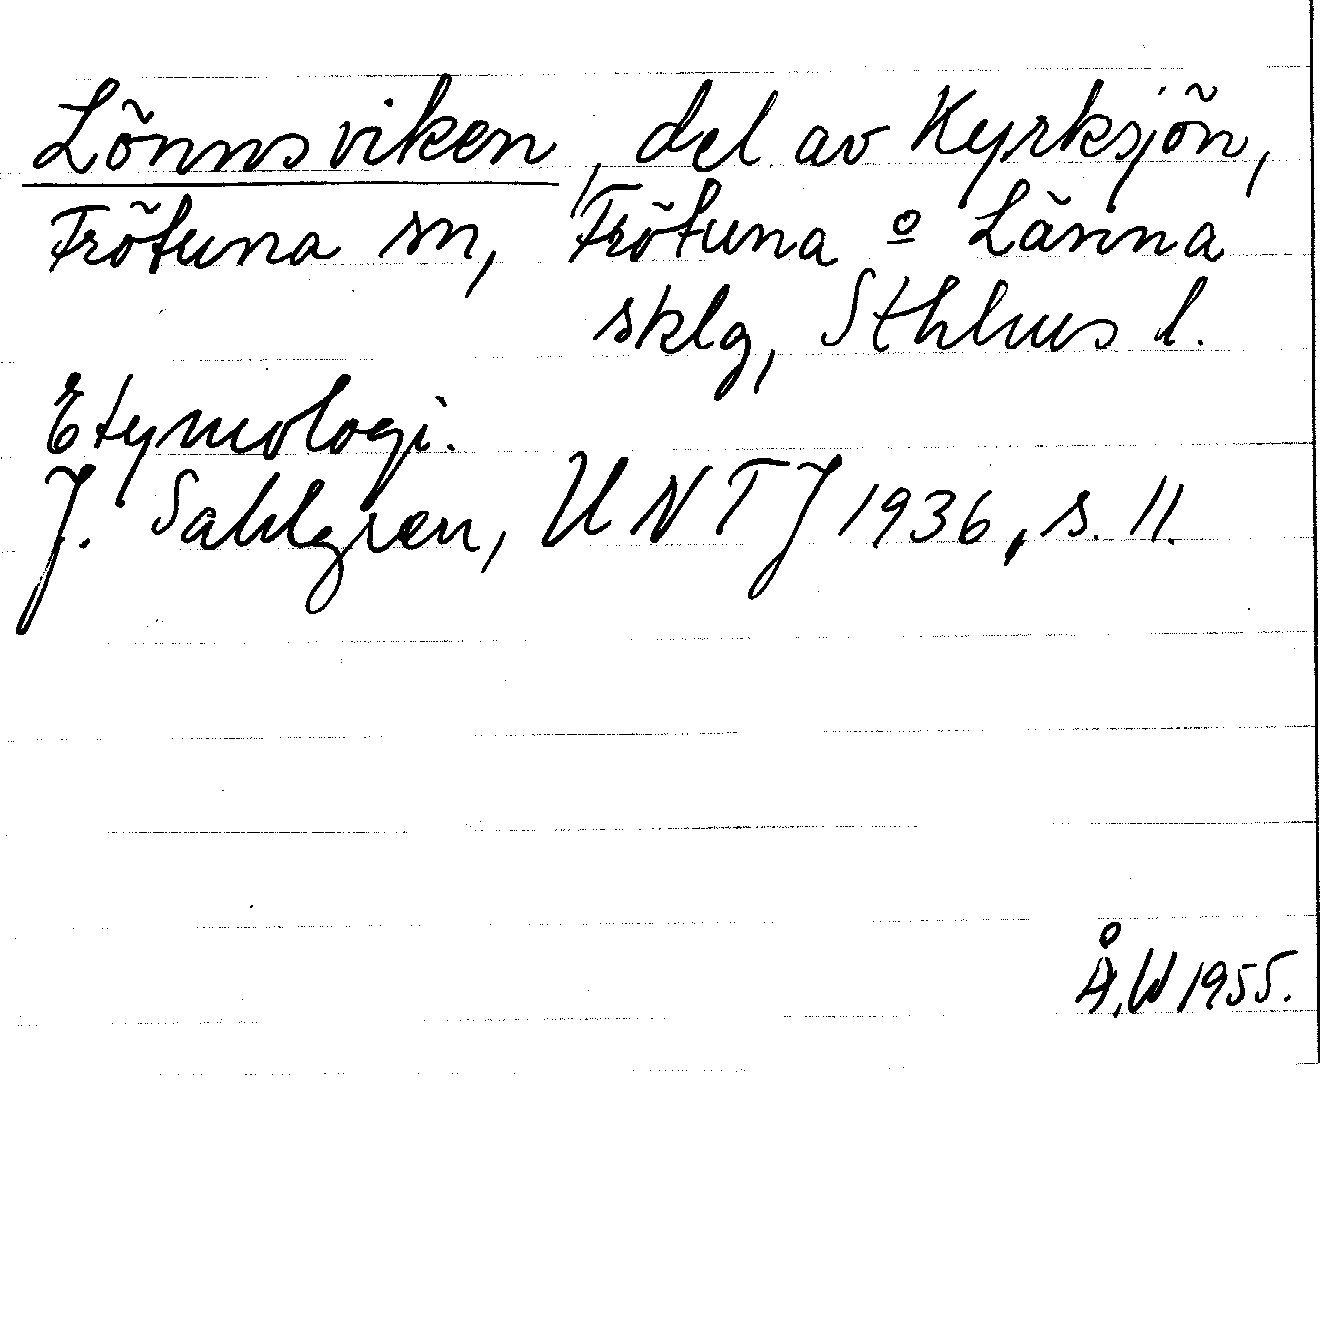 Lönnsviken, del av Kyrksjön,
Frötuna sn, Frötuna o Länna
sklg, Sthlms l.
Etymologi.
J. Sahlgren, UNTJ 1936, s. 11.
Å.W 1955.